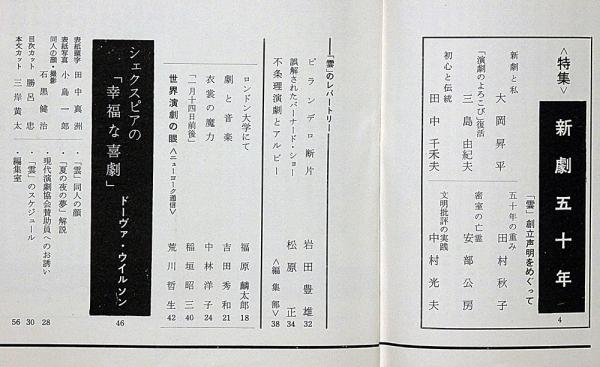 <特集>
新劇五十年
4
新劇と私
大岡昇平
「演劇のよろこび」復活
三島由紀夫
初心と伝統
田中千禾夫
「雲」創立声明をめぐって
五十年の重み
田村秋子
密室の亡霊
安部公房
文明批評の実践
中村光夫
「雲」のレパートリー
ピランデロ断片
岩田豊雄 32
誤解されたバーナード・ショー
松原正 34
不条理演劇とアルビー
<編集部> 38
ロンドン大学にて
福原麟太郎 18
劇と音楽
吉田秀和 21
衣裳の魔力
中林洋子 24
「二月十四日前後」
稲垣昭三 40
世界演劇の眼<ニューヨーク通信>
荒川哲生 42
シェクスピアの
「幸福な喜劇」
ドーヴァ・ウイルソン
46
表紙題字 田中真洲
表紙写真 小島一郎
同人の顔・撮影
石黒健治
目次カット 勝呂忠
本文カット 三岸黄太
・「雲」同人の顔 28
・「夏の夜の夢」解説 30
・現代演劇協会賛助員へのお誘い
・「雲」のスケジュール 56
・編集室